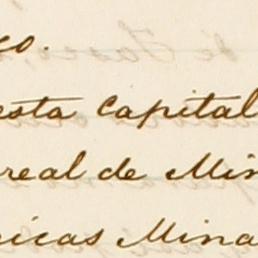 co.
esta capital
real de Min
icas Mina